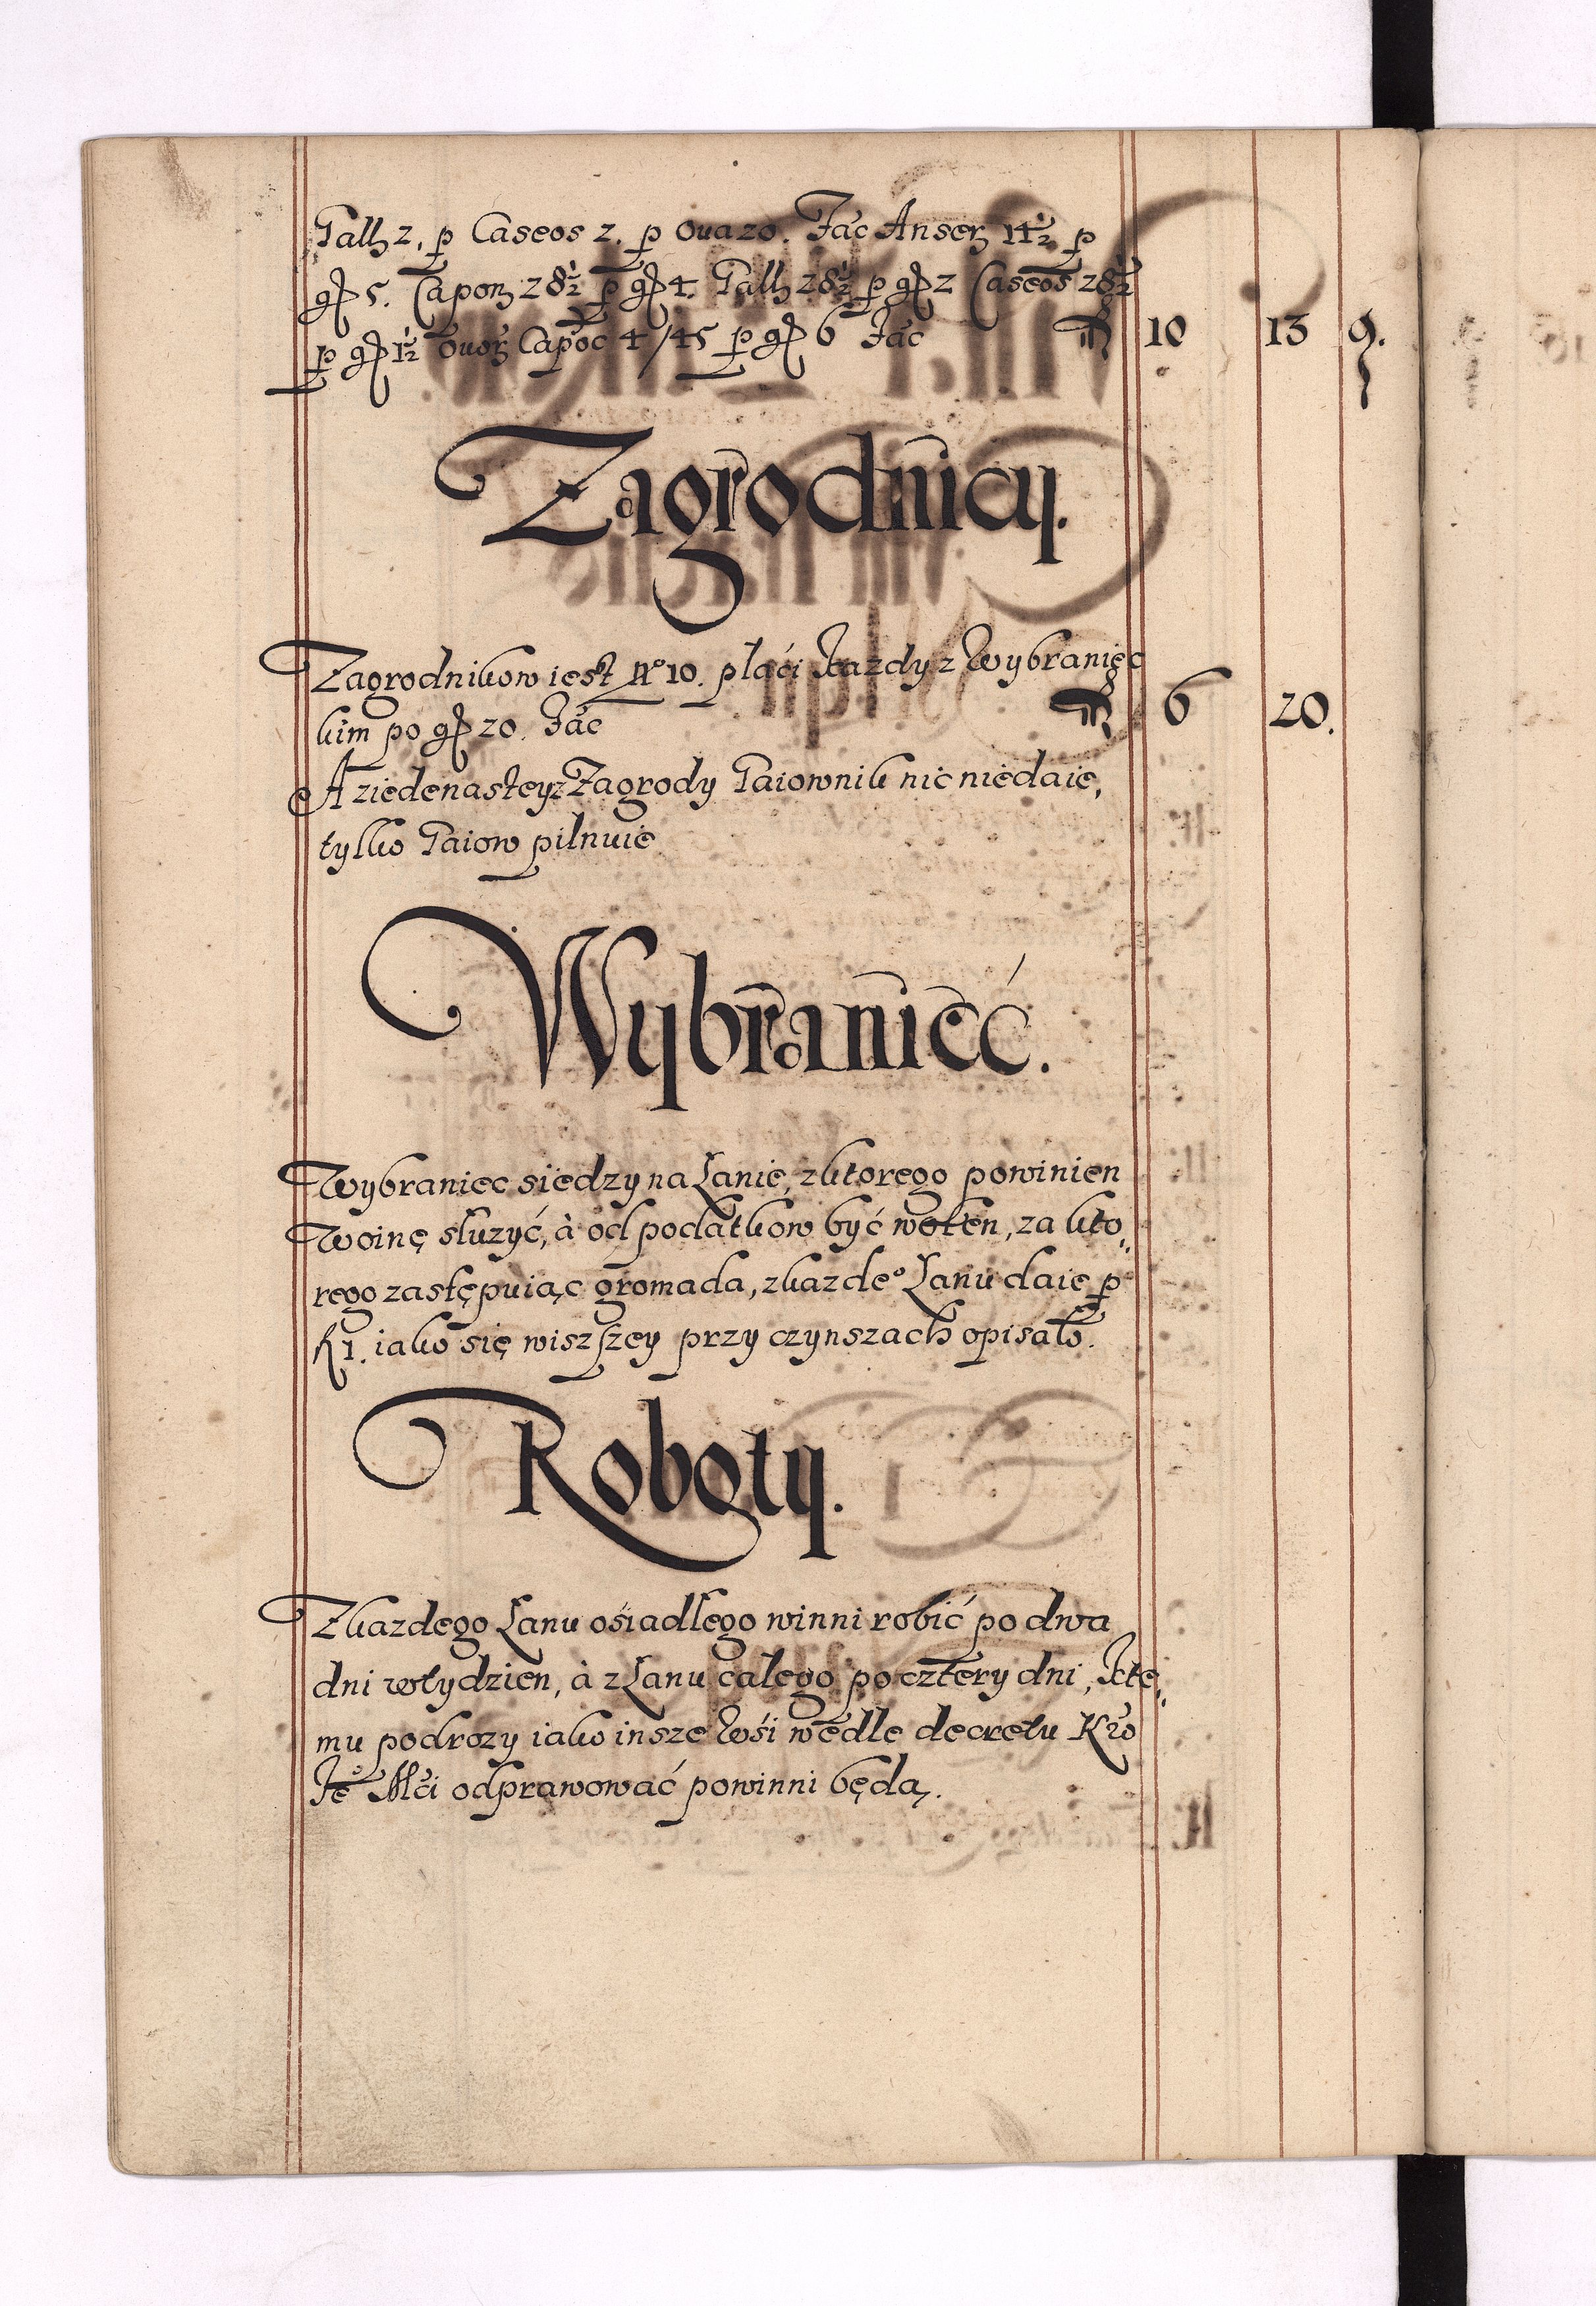 Gall 2, p Caseos 2. p Oua 20. Fac Anser 14½ p
gr 5. Capon 28½ p gr 4. Gall 28½ p gr 2 Caseos 28½
p gr 1½ Ouor Capoc 4/45 p gr 6 Fac fl 10 13 9.
Zagrodnicy.
Zagrodnikow iest No 10. płaći kazdy z Wybranięc
kim po gr 20. Fac fl 6 20.
A ziedenasteyz Zagrody Gaiownik nic niedaie,
tylko Gaiow pilnuie
Wybranieć.
Wybraniec siedzy na Łanie, zktorego powinien
Woinę służyć, à od podatkow być wolen, za kto„
rego zastępuiąc gromada, zkazdeo Łanu daie p
fl 1. iako się wiszszey przy czynszach opisało.
Roboty.
Zkazdego Łanu ośiadłego winni robić po dwa
dni wtydzien, à z Łanu całego po cztery dni, Kte„
mu podrozy iako insze Wśi wedle decretu Kro
Je Mći odprawować powinni będą.